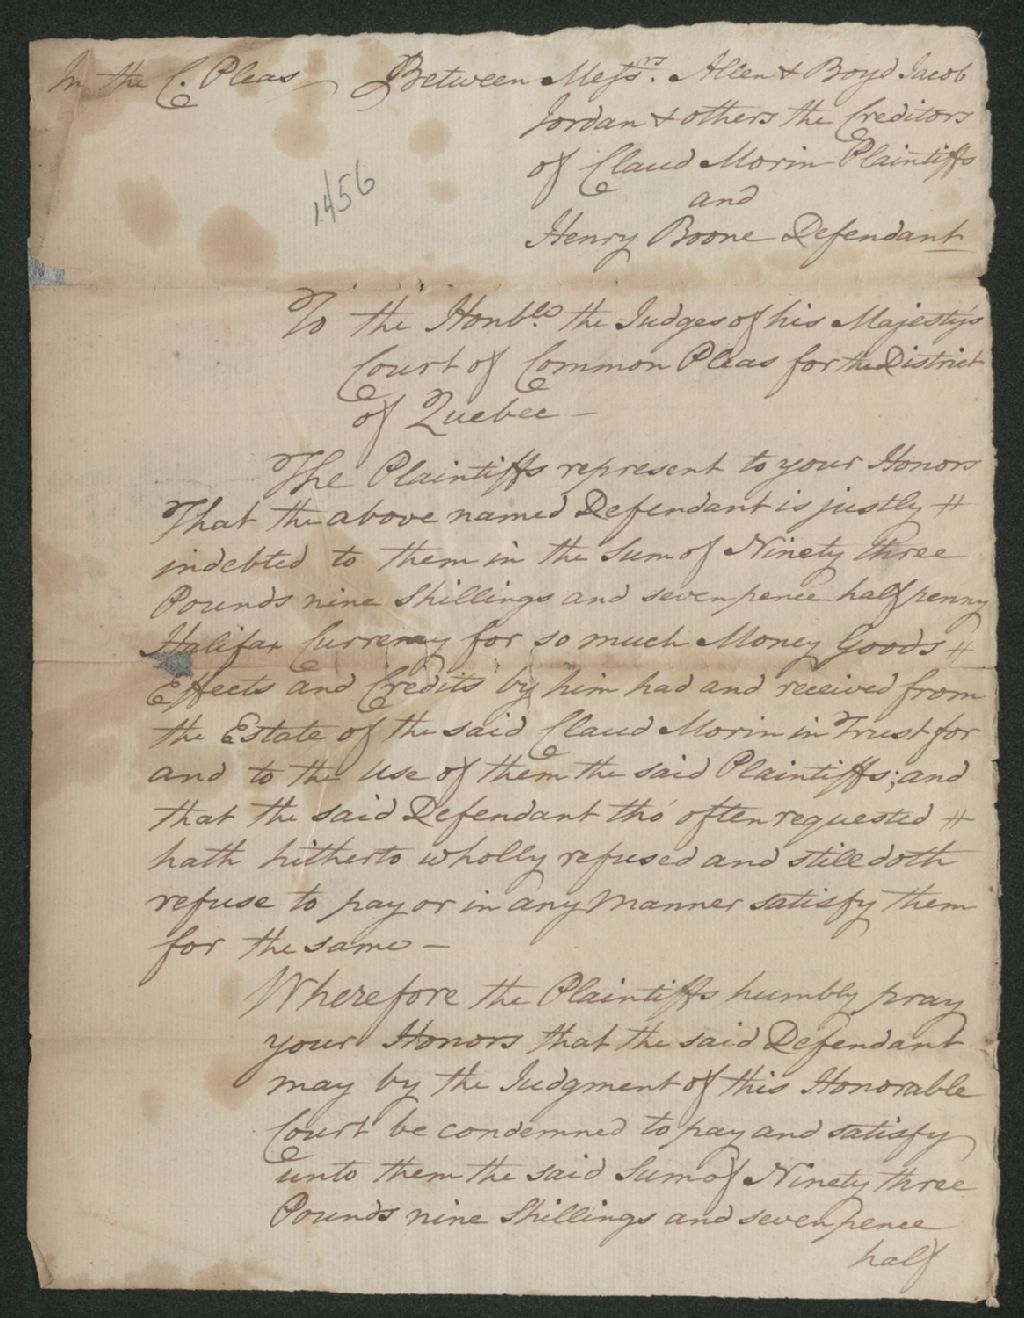 In the C. Pleas — Between Messrs. Allen & Boyd Jacob
Jordan & others the Creditors
of Claud Morin Plaintiffs
and
Henry Boone Defendant
1456
To the Honble. the Judges of his Majestys
Court of Common Pleas for the District
of Quebec —
The Plaintiffs represent to your Honors
That the above named Defendant is justly #
indebted to them in the Sum of Ninety three
Pounds nine Shillings and seven pence half penny
Halifax Currency for so much Money Goods #
Effects and Credits by him had and received from
the Estate of the said Claud Morin in Trust for
and to the Use of them the said Plaintiffs; and
that the said Defendant tho' often requested #
hath hitherto wholly refused and still doth
refuse to pay or in any Manner satisfy them
for the same —
Wherefore the Plaintiffs humbly pray
your Honors that the said Defendant
may by the Judgment of this Honorable
Court be condemned to pay and satisfy
unto them the said Sum of Ninety three
Pounds nine Shillings and seven pence
half